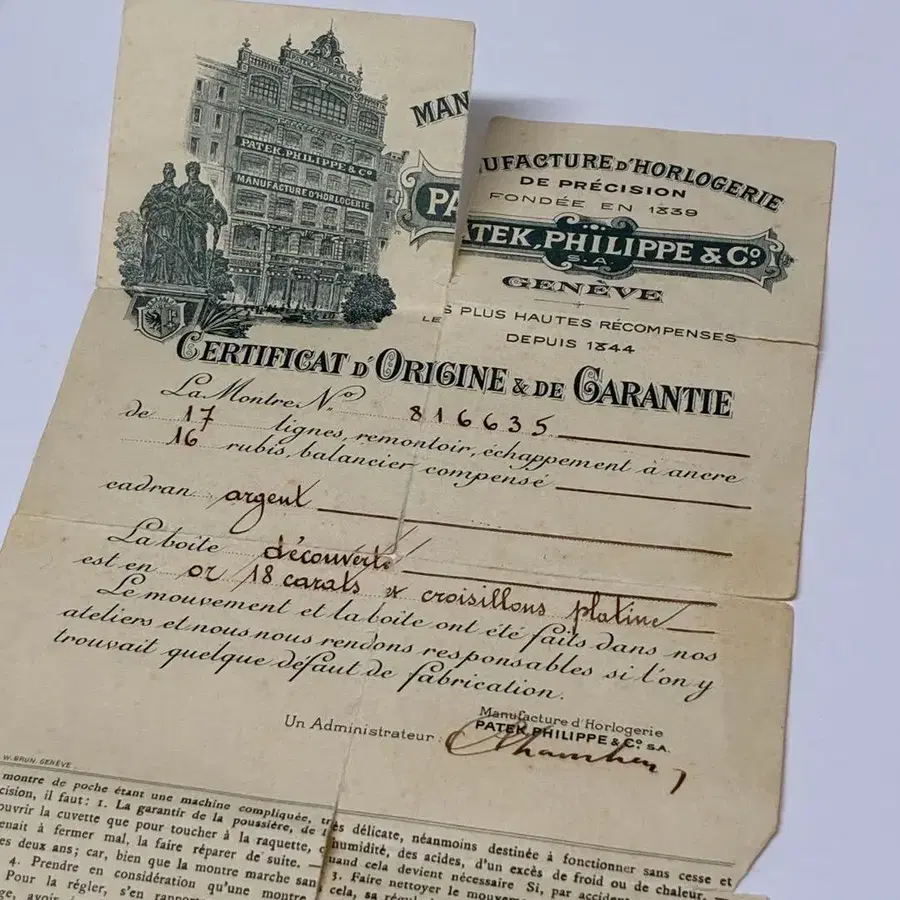 PATEK, PHILIPPE & Cº
PATEK, PHILIPPE & Cº
MANUFACTURE D'HORLOGERIE
MAN
PA
NUFACTURE D'HORLOGERIE
DE PRÉCISION
FONDÉE EN 1839
ATEK, PHILIPPE & Cº
S.A.
GENÈVE
LES PLUS HAUTES RÉCOMPENSES
DEPUIS 1844
CERTIFICAT D'ORIGINE & DE GARANTIE
La Montre Nº 816635
de 17 lignes, remontoir, échappement à ancre
16 rubis, balancier compensé
cadran argent
La boite découverte
est en or 18 carats et croisillons platine
Le mouvement et la boîte ont été faits dans nos
ateliers et nous nous rendons responsables si l'on y
trouvait quelque défaut de fabrication.
Manufacture d'Horlogerie
PATEK, PHILIPPE & Cº S.A.
Un Administrateur:
W. BRUN. GENÈVE
montre de poche étant une machine compliquée, très délicate, néanmoins destinée à fonctionner sans cesse et
cision, il faut: 1. La garantir de la poussière, de l'humidité, des acides, d'un excès de froid ou de chaleur.
ouvrir la cuvette que pour toucher à la raquette, quand cela devient nécessaire Si, par accident
enait à fermer mal, la faire réparer de suite. — 3. Faire nettoyer le mouvement
es deux ans; car, bien que la montre marche sans cela, sa
4. Prendre en considération qu'une montre
Pour la régler, s'en